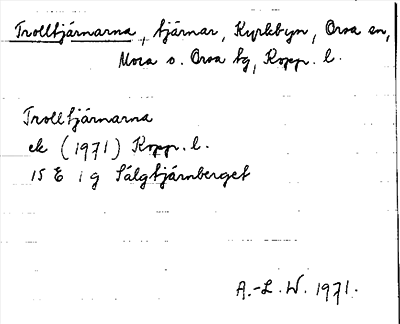 Trolltjärnarna, tjärnar, Kyrkbyn, Orsa en,
Mora o. Orsa tg, Kopp. l.
Trolltjärnarna
ek (1971) Kopp. l.
15 E 1 g Sälgtjärnberget
A.-L. W. 1971.